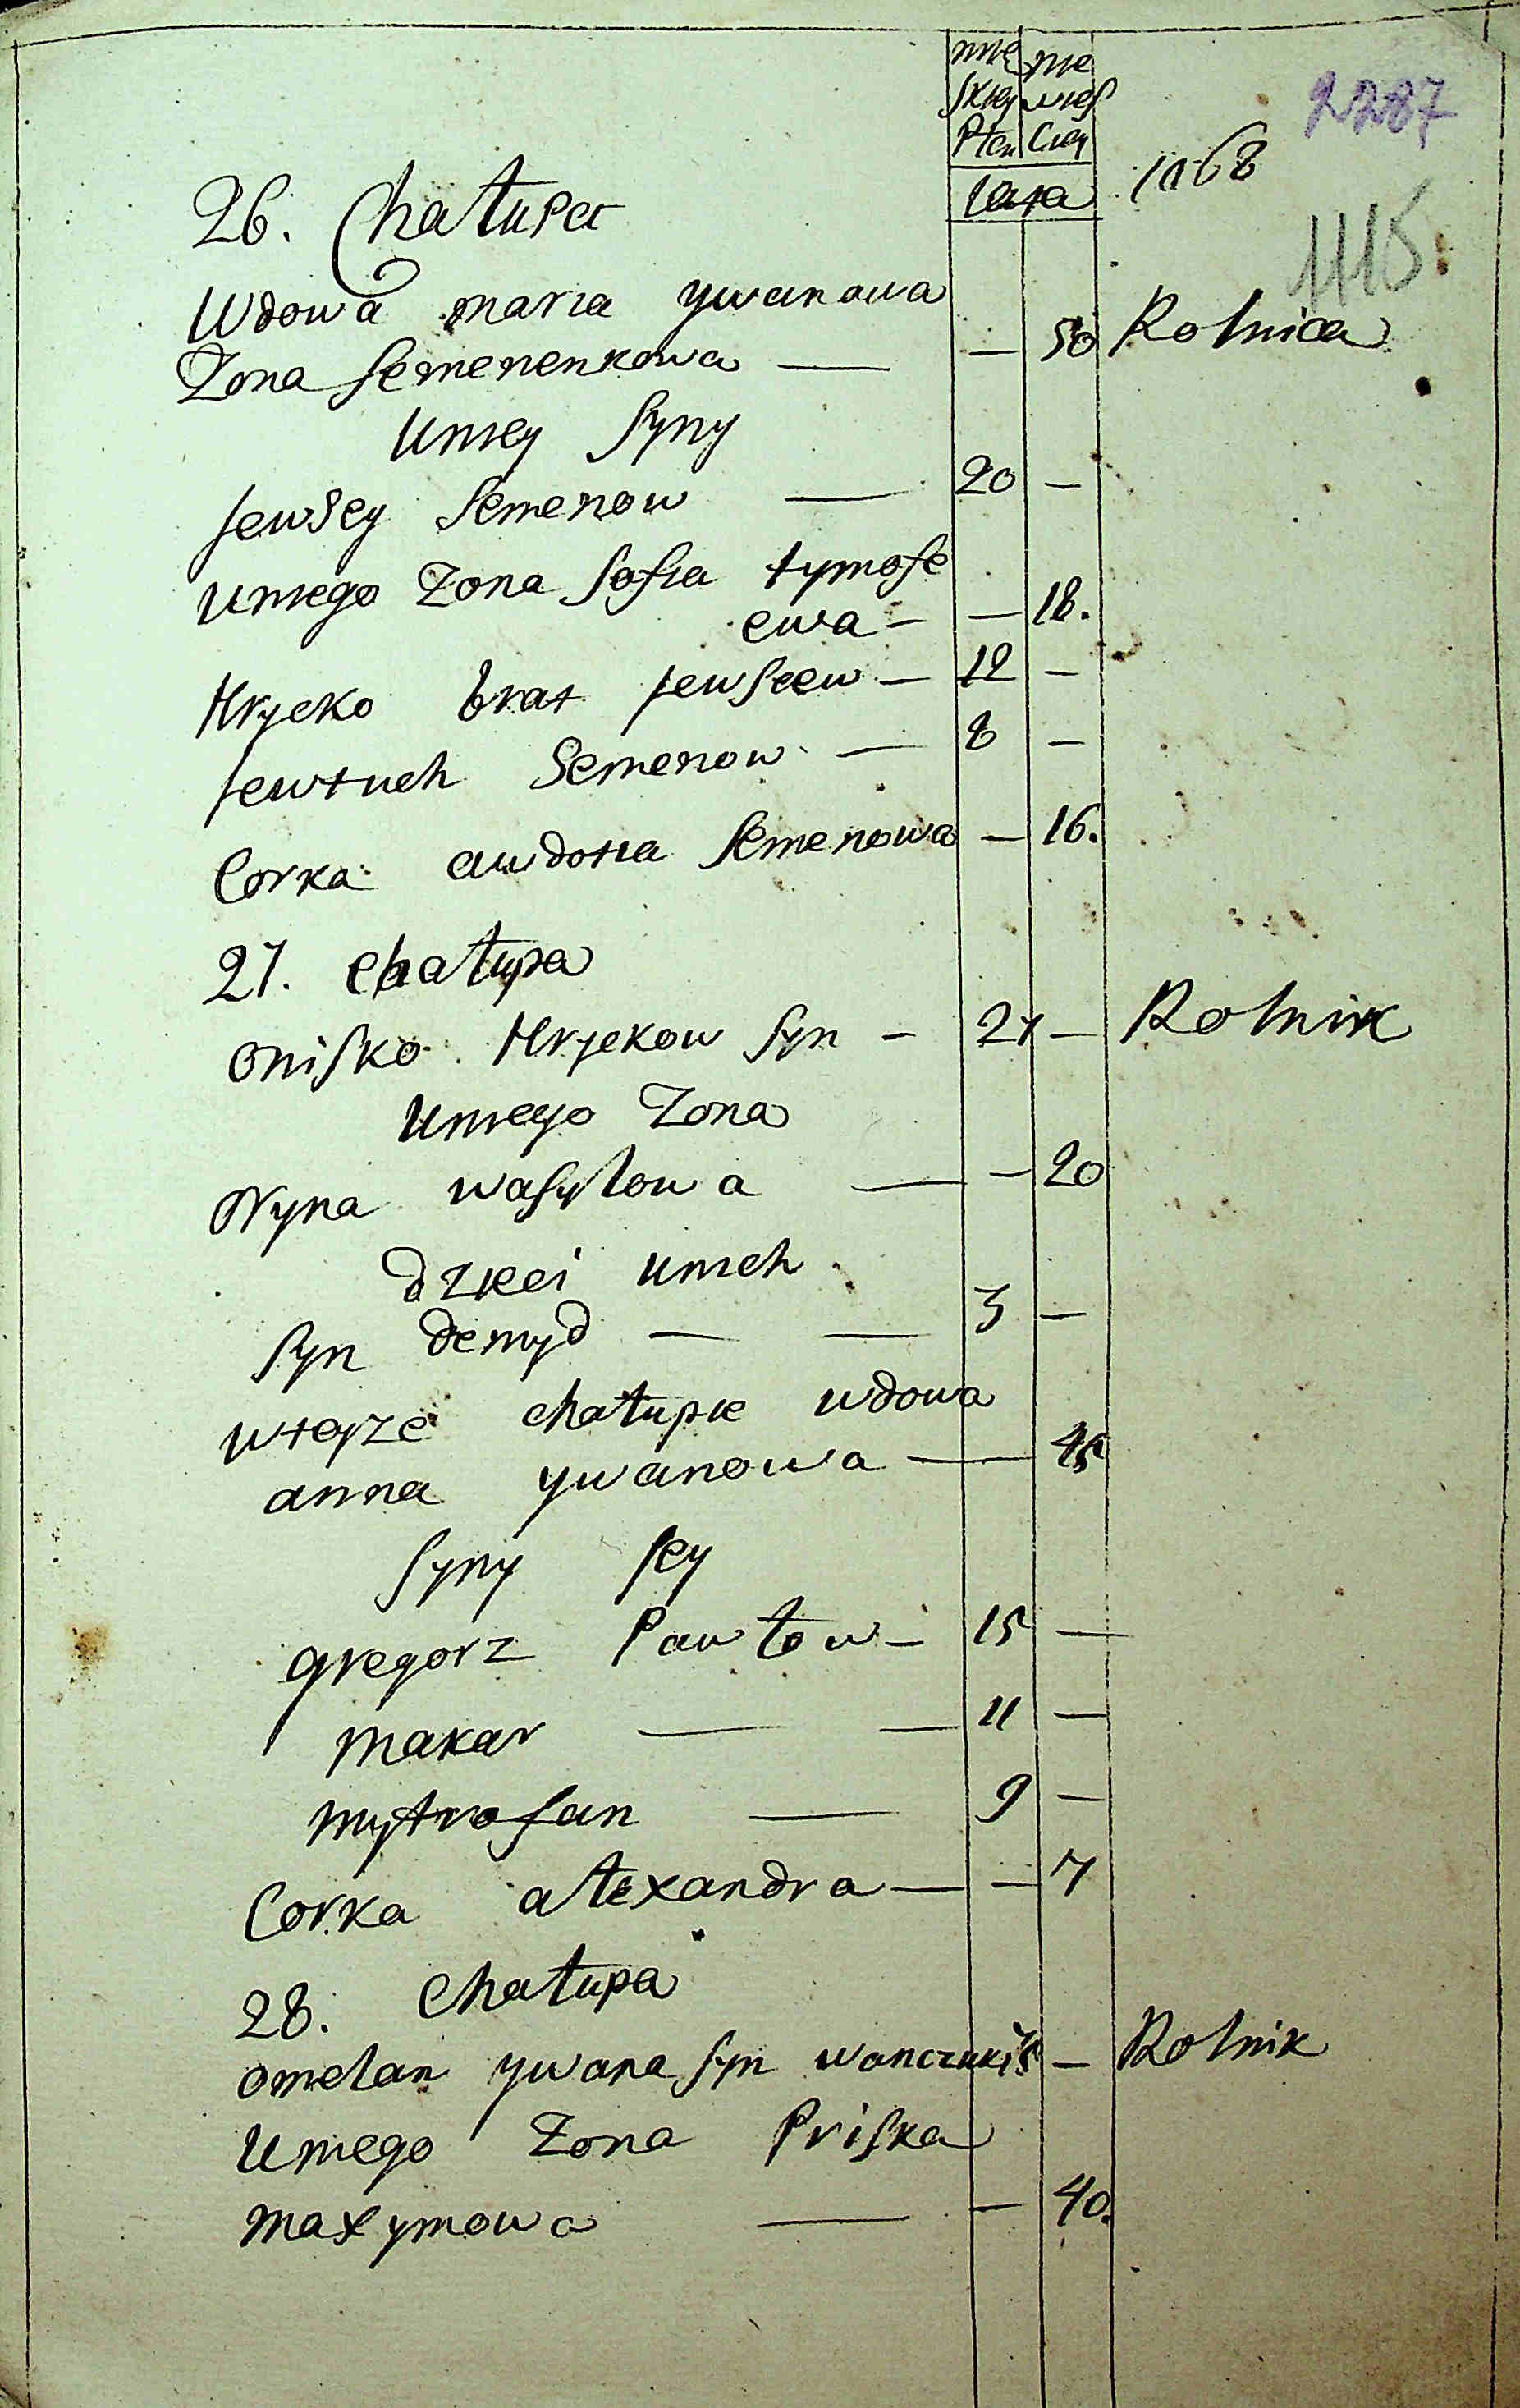 męskiey Płeu
niewiesciey
Lata
2287
1068
1115.
26. Chałupa
Wdowa maria ywanowa
Zona Semenenkowa — — 50 Rolnica
Uniey Syny
Jewsey Semenow — 20 —
Uniego Zona Sofia tymofe
ewa — — 18.
Hrycko brat Jewseew — 12 —
Jewtuch Semenow — 8 —
Corka awdotia Semenowa — 16.
27. chałupa
Onisko Hryckow Syn — 24 — Rolnik
Uniego Zona
wasylowa — — 20
dzieci unich
Syn demyd — — 3 —
wteyze chałupie wdowa
anna ywanowa — 45
Syny Jey
gregorz Pawłow — 15 —
makar — — 11 —
mytrofan — 9 —
Corka alexandra — — 7
28. Chałupa
omelan ywana Syn wanczuk — Rolnik
Uniego Zona Priska
maxymowa — — 40.